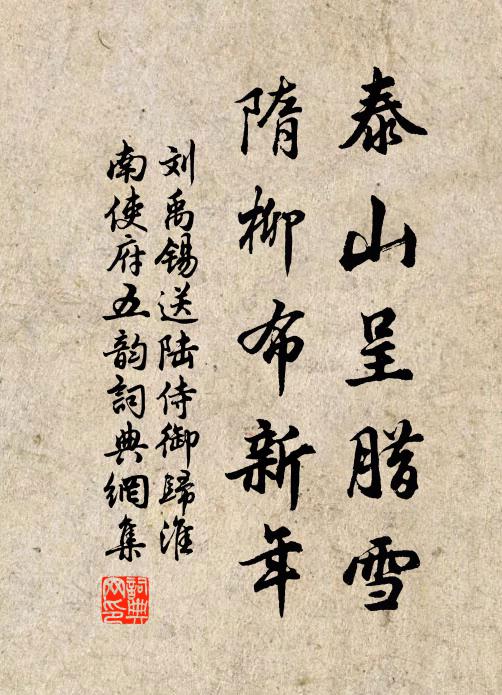 泰山呈腊雪
隋柳布新年
刘禹锡送陆侍御歸淮
南使府五韵詞典網集